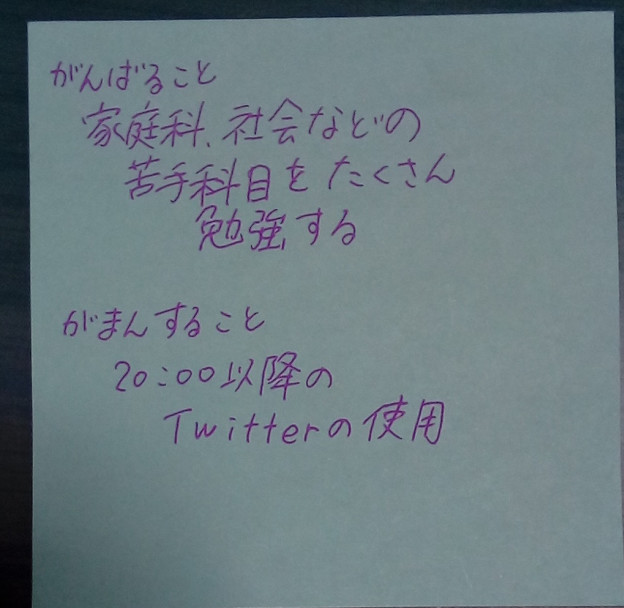 がんばること
家庭科、社会などの
苦手科目をたくさん
勉強する
がまんすること
20:00以降の
Twitterの使用